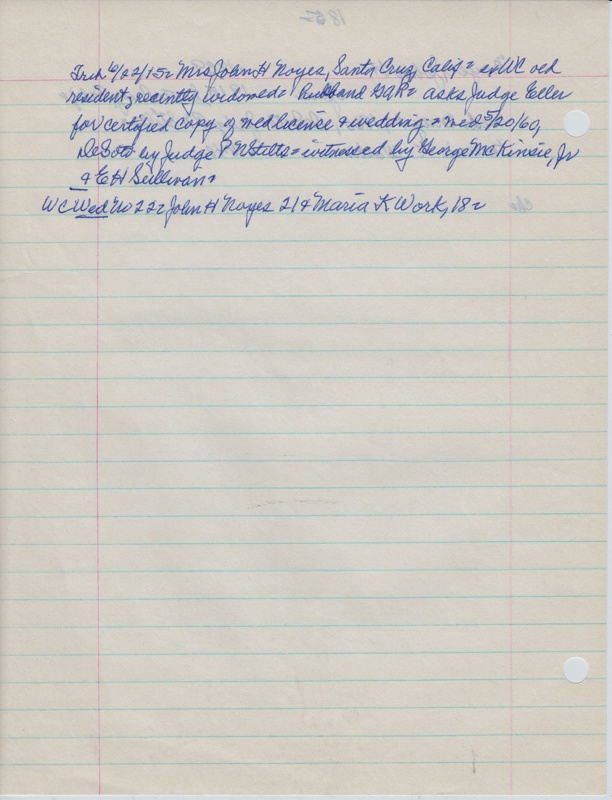 Trib 6/22/15= Mrs John H Noyes, Santa Cruz, Calif= exWC old
resident, recently widowed= husband GAR= asks Judge Eller
for certified copy of med license & wedding= med 5/20/60,
DeSoto by Judge P N Stilts= witnessed by George McKinsie, Jr
& E H Sullivan=
WC Wed No 22= John H Noyes 21 & Maria K Work, 18=